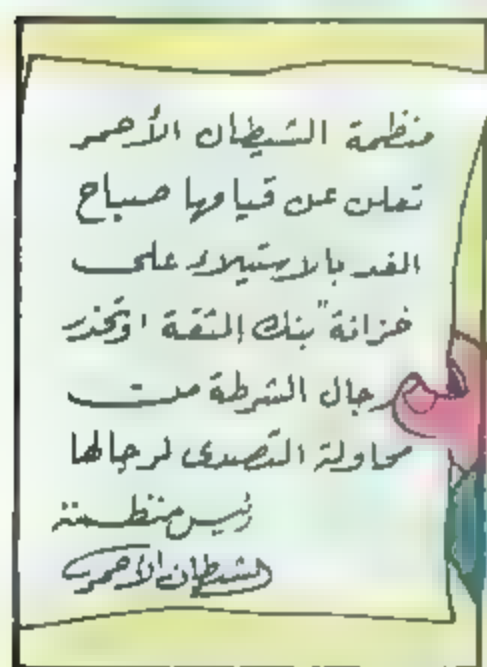 منظمة الشيطان الأحمر
تعلن عن قيامها صباح
الغد بالاستيلاء على
خزانة "بنك الثقة" وتحذر
رجال الشرطة من
محاولة التصدى لرجالها
رئيس منظمة
الشيطان الأحمر